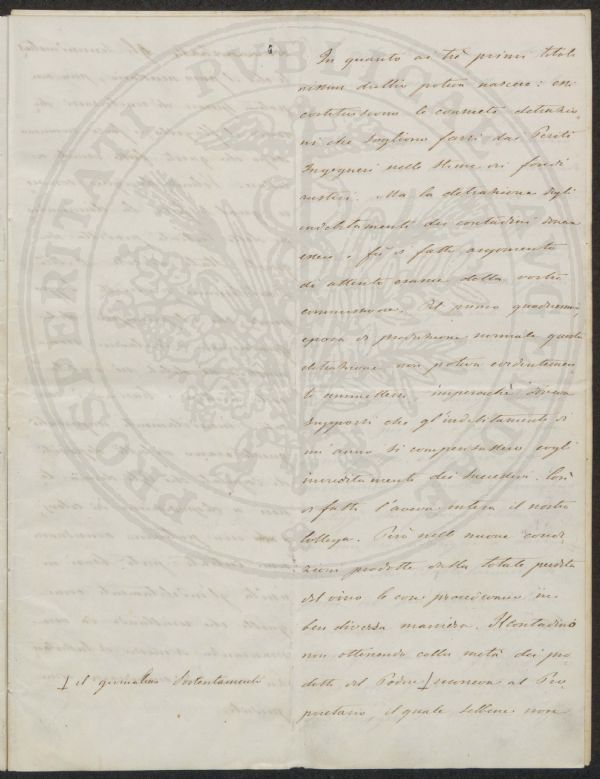 PROSPERITATI PVBLICAE
In quanto ai tre primi titoli
nissun dubbio poteva nascere: essi
costituiscono le consuete detrazio
ni che sogliono farsi dai Periti
Ingegneri nelle stime dei fondi
rustici. Ma la detrazione degli
indebitamenti dei contadini doveva
essere e fu di fatti argomento
di attento esame della vostra
commissione. Pel primo quadriennio
epoca di produzione normale questa
detrazione non poteva evidentemen
te ammettersi imperochè doveva
supporsi che gl'indebitamenti di
un anno si compensassero cogli
increditamenti dei successivi. Così
di fatti l'aveva intesa il nostro
collega. Però nelle nuove condi
zioni prodotte dalla totale perdita
del vino le cose procedevano in
ben diversa maniera. Il contadino
non ottenendo colla metà dei pro-
dotti del Podere ⌉ ricorreva al Pro
prietario, il quale sebbene non
⌉ il giornaliero sostentamento